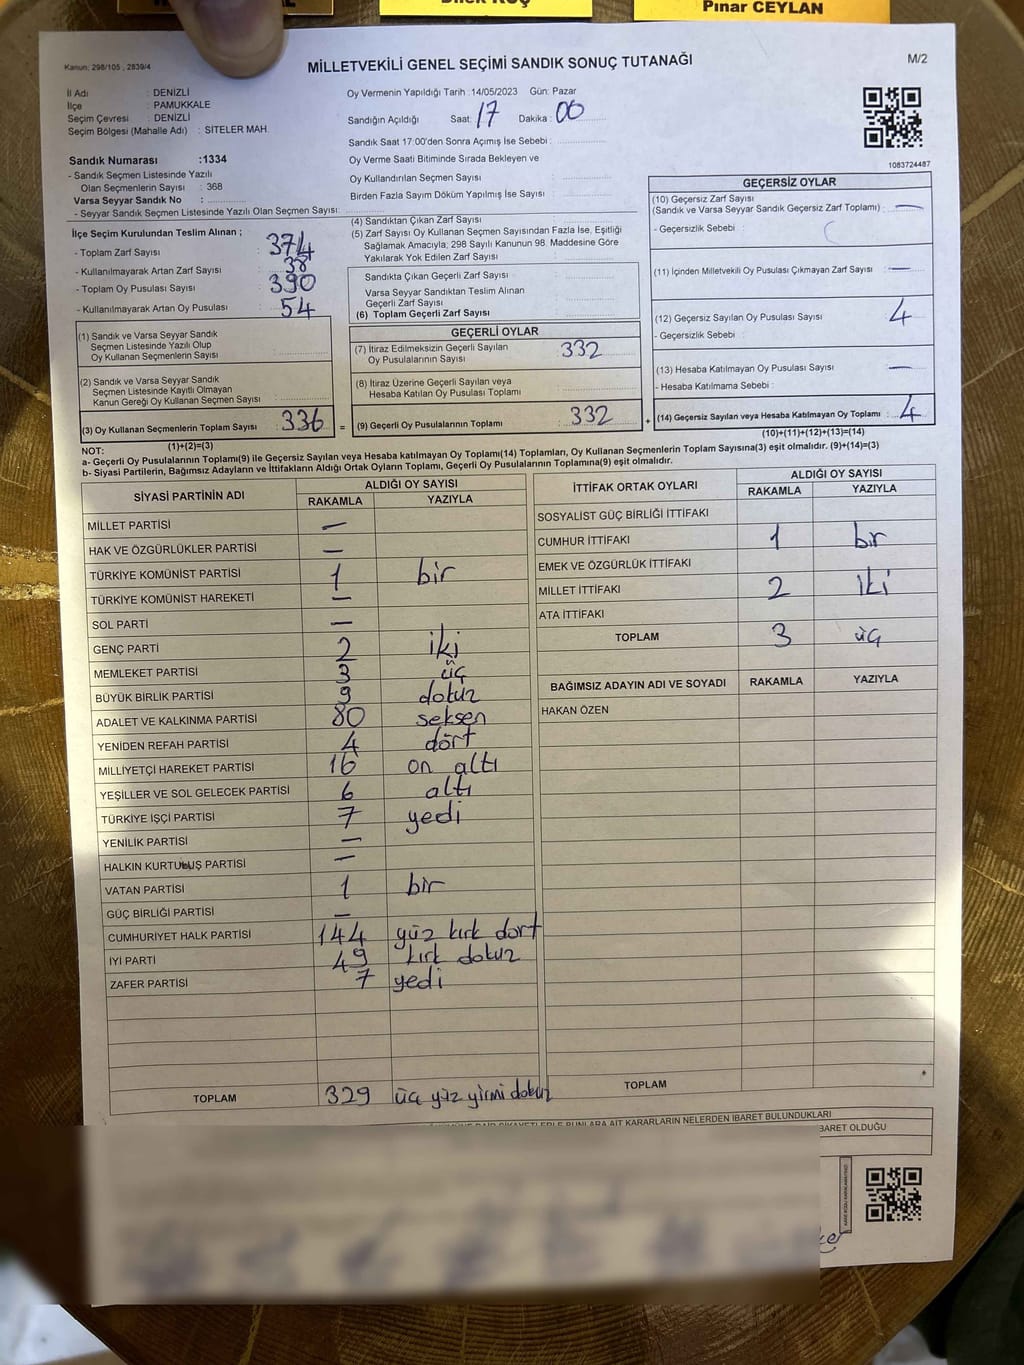 Pınar CEYLAN
Kanun: 298/105 , 2839/4
MİLLETVEKİLİ GENEL SEÇİMİ SANDIK SONUÇ TUTANAĞI
M/2
İl Adı : DENİZLİ
İlçe : PAMUKKALE
Seçim Çevresi : DENİZLİ
Seçim Bölgesi (Mahalle Adı) : SİTELER MAH.
Oy Vermenin Yapıldığı Tarih :14/05/2023 Gün: Pazar
Sandığın Açıldığı Saat: 17 Dakika : 00
Sandık Saat 17:00'den Sonra Açımış İse Sebebi :
Oy Verme Saati Bitiminde Sırada Bekleyen ve
Oy Kullandırılan Seçmen Sayısı :
Birden Fazla Sayım Döküm Yapılmış İse Sayısı :
1083724487
Sandık Numarası :1334
- Sandık Seçmen Listesinde Yazılı
Olan Seçmenlerin Sayısı : 368
Varsa Seyyar Sandık No :
- Seyyar Sandık Seçmen Listesinde Yazılı Olan Seçmen Sayısı:
İlçe Seçim Kurulundan Teslim Alınan ;
- Toplam Zarf Sayısı : 374
- Kullanılmayarak Artan Zarf Sayısı : 38
- Toplam Oy Pusulası Sayısı : 390
- Kullanılmayarak Artan Oy Pusulası : 54
(1) Sandık ve Varsa Seyyar Sandık
Seçmen Listesinde Yazılı Olup
Oy Kullanan Seçmenlerin Sayısı :
(2) Sandık ve Varsa Seyyar Sandık
Seçmen Listesinde Kayıtlı Olmayan
Kanun Gereği Oy Kullanan Seçmen Sayısı :
(3) Oy Kullanan Seçmenlerin Toplam Sayısı : 336
(1)+(2)=(3)
(4) Sandıktan Çıkan Zarf Sayısı :
(5) Zarf Sayısı Oy Kullanan Seçmen Sayısından Fazla İse, Eşitliği
Sağlamak Amacıyla; 298 Sayılı Kanunun 98. Maddesine Göre
Yakılarak Yok Edilen Zarf Sayısı :
Sandıkta Çıkan Geçerli Zarf Sayısı :
Varsa Seyyar Sandıktan Teslim Alınan
Geçerli Zarf Sayısı :
(6) Toplam Geçerli Zarf Sayısı :
GEÇERLİ OYLAR
(7) İtiraz Edilmeksizin Geçerli Sayılan
Oy Pusulalarının Sayısı : 332
(8) İtiraz Üzerine Geçerli Sayılan veya
Hesaba Katılan Oy Pusulası Toplamı :
= (9) Geçerli Oy Pusulalarının Toplamı : 332
GEÇERSİZ OYLAR
(10) Geçersiz Zarf Sayısı
(Sandık ve Varsa Seyyar Sandık Geçersiz Zarf Toplamı) : —
- Geçersizlik Sebebi :
(11) İçinden Milletvekili Oy Pusulası Çıkmayan Zarf Sayısı : —
(12) Geçersiz Sayılan Oy Pusulası Sayısı : 4
- Geçersizlik Sebebi :
(13) Hesaba Katılmayan Oy Pusulası Sayısı : —
- Hesaba Katılmama Sebebi :
+ (14) Geçersiz Sayılan veya Hesaba Katılmayan Oy Toplamı : 4
(10)+(11)+(12)+(13)=(14)
NOT:
a- Geçerli Oy Pusulalarının Toplamı(9) ile Geçersiz Sayılan veya Hesaba katılmayan Oy Toplamı(14) Toplamları, Oy Kullanan Seçmenlerin Toplam Sayısına(3) eşit olmalıdır. (9)+(14)=(3)
b- Siyasi Partilerin, Bağımsız Adayların ve İttifakların Aldığı Ortak Oyların Toplamı, Geçerli Oy Pusulalarının Toplamına(9) eşit olmalıdır.
SİYASİ PARTİNİN ADI ALDIĞI OY SAYISI
RAKAMLA YAZIYLA
MİLLET PARTİSİ —
HAK VE ÖZGÜRLÜKLER PARTİSİ —
TÜRKİYE KOMÜNİST PARTİSİ 1 bir
TÜRKİYE KOMÜNİST HAREKETİ —
SOL PARTİ —
GENÇ PARTİ 2 iki
MEMLEKET PARTİSİ 3 üç
BÜYÜK BİRLİK PARTİSİ 9 dokuz
ADALET VE KALKINMA PARTİSİ 80 seksen
YENİDEN REFAH PARTİSİ 4 dört
MİLLİYETÇİ HAREKET PARTİSİ 16 on altı
YEŞİLLER VE SOL GELECEK PARTİSİ 6 altı
TÜRKİYE İŞÇİ PARTİSİ 7 yedi
YENİLİK PARTİSİ —
HALKIN KURTULUŞ PARTİSİ —
VATAN PARTİSİ 1 bir
GÜÇ BİRLİĞİ PARTİSİ —
CUMHURİYET HALK PARTİSİ 144 yüz kırk dört
İYİ PARTİ 49 kırk dokuz
ZAFER PARTİSİ 7 yedi
TOPLAM 329 üç yüz yirmi dokuz
İTTİFAK ORTAK OYLARI ALDIĞI OY SAYISI
RAKAMLA YAZIYLA
SOSYALİST GÜÇ BİRLİĞİ İTTİFAKI
CUMHUR İTTİFAKI 1 bir
EMEK VE ÖZGÜRLÜK İTTİFAKI
MİLLET İTTİFAKI 2 iki
ATA İTTİFAKI
TOPLAM 3 üç
BAĞIMSIZ ADAYIN ADI VE SOYADI RAKAMLA YAZIYLA
HAKAN ÖZEN
TOPLAM
AİT KARARLARIN NELERDEN İBARET BULUNDUKLARI
BARET OLDUĞU